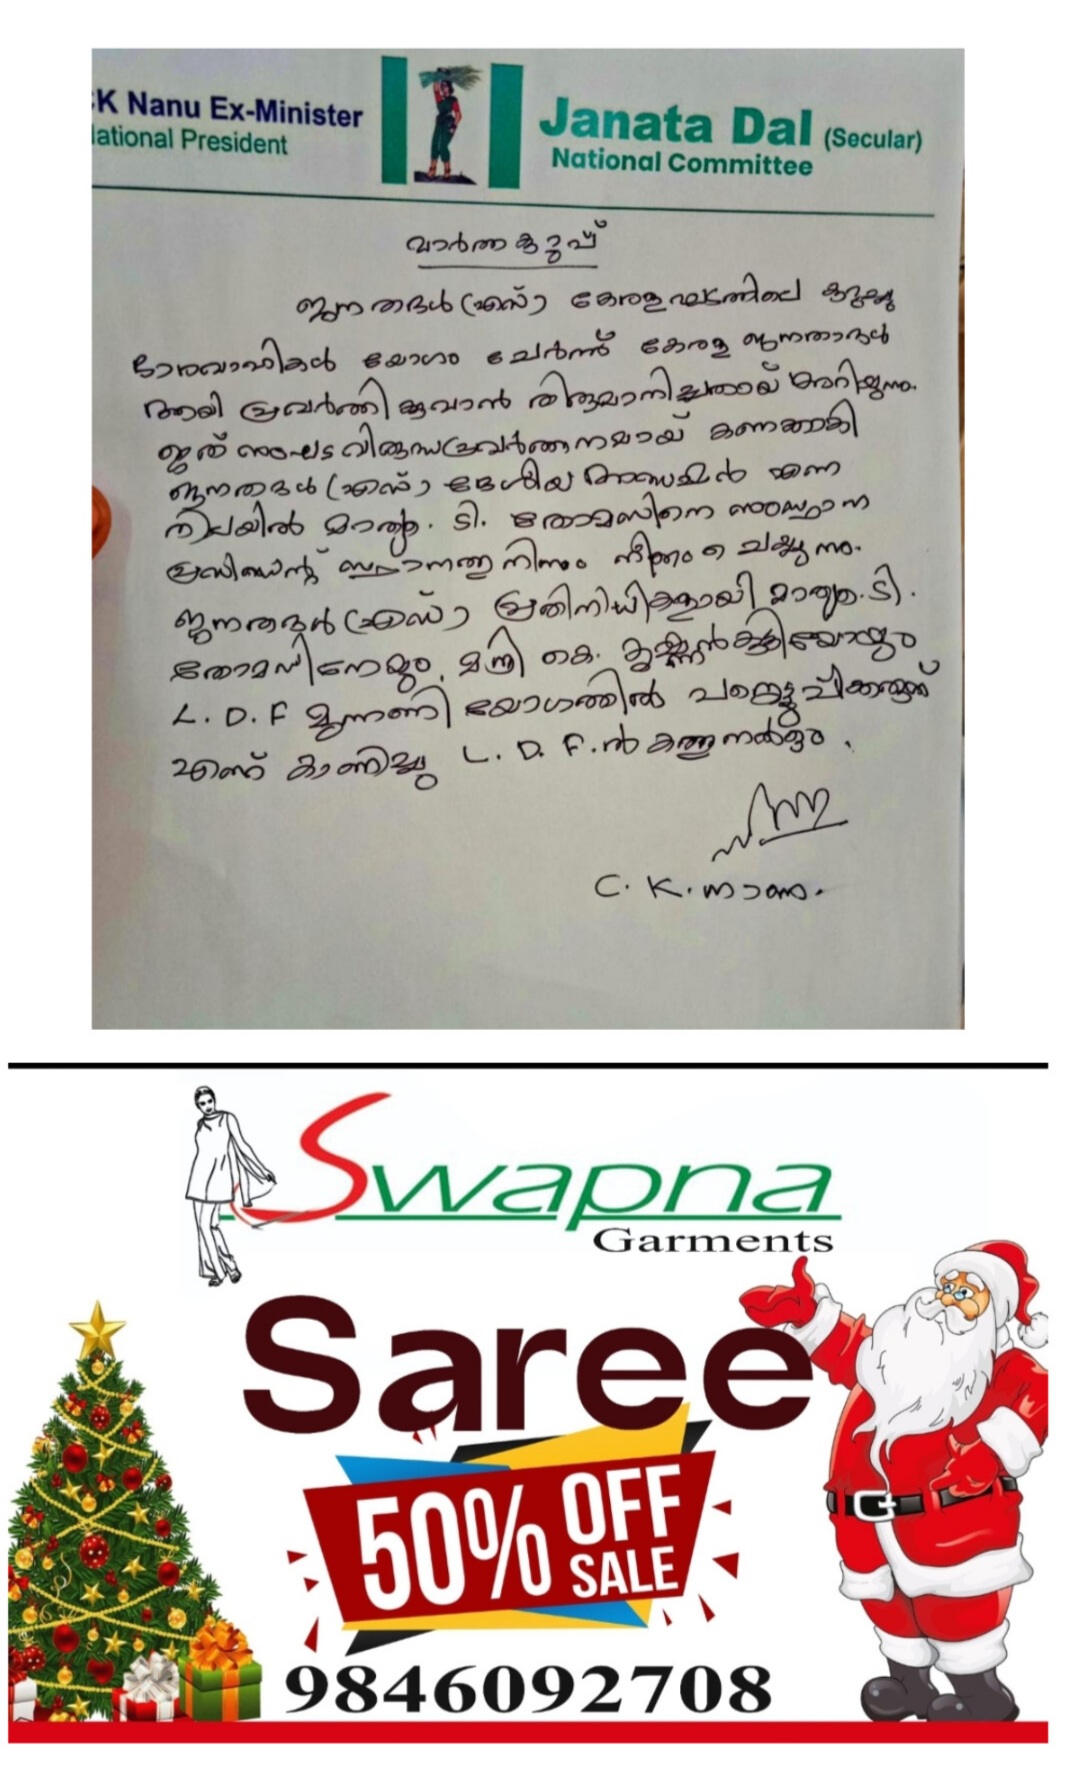 CK Nanu Ex-Minister
National President
Janata Dal (Secular)
National Committee
വാർത്തകുറുപ്പ്
ജനതദൾ (എസ്) കേരള ഘടകത്തിലെ കുറച്ചു
ഭാരവാഹികൾ യോഗം ചേർന്ന് കേരള ജനതാദൾ
ആയി പ്രവർത്തിക്കുവാൻ തിരുമാനിച്ചതായ് അറിയുന്നു.
ഇത് സംഘടന വിരുദ്ധപ്രവർത്തനമായ് കണക്കാക്കി
ജനതദൾ (എസ്) ദേശീയ അദ്ധ്യക്ഷൻ എന്ന
നിലയിൽ മാത്യു. ടി. തോമസിനെ സംസ്ഥാന
പ്രസിഡന്റ് സ്ഥാനത്തുനിന്നും നീക്കം ചെയ്യുന്നു.
ജനതദൾ (എസ്) പ്രതിനിധികളായി മാത്യു. ടി.
തോമസിനേയും, മന്ത്രി കെ. കൃഷ്ണൻകുട്ടിയേയും
L. D. F മുന്നണി യോഗത്തിൽ പങ്കെടുപ്പിക്കരുത്
എന്ന് കാണിച്ചു L. D. F. ന് കത്തു നൽകും.
C. K. നാണു.
Swapna
Garments
Saree
50% OFF
SALE
9846092708